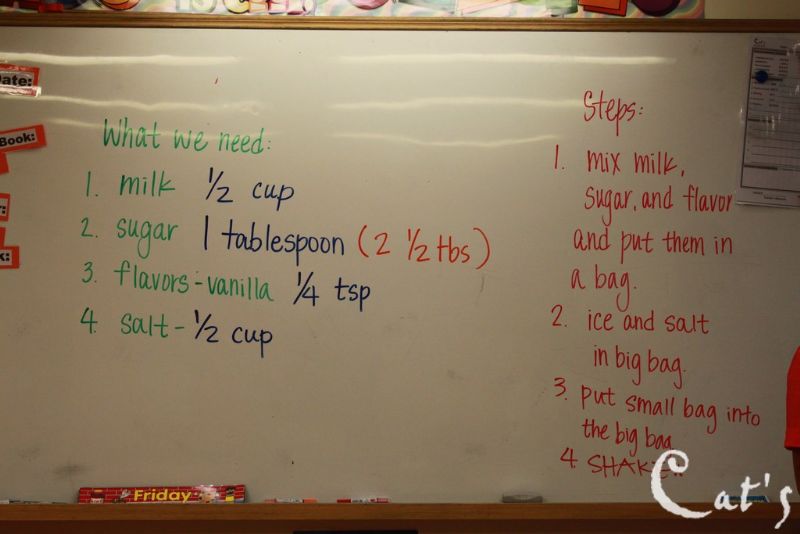 Date:
Book:
k:
What we need:
1. milk 1/2 cup
2. sugar 1 tablespoon (2 1/2 tbs)
3. flavors:-vanilla 1/4 tsp
4. salt - 1/2 cup
Steps:
1. mix milk,
sugar, and flavor
and put them in
a bag.
2. ice and salt
in big bag.
3. put small bag into
the big bag
4. SHAKE!!
Friday
Cat's